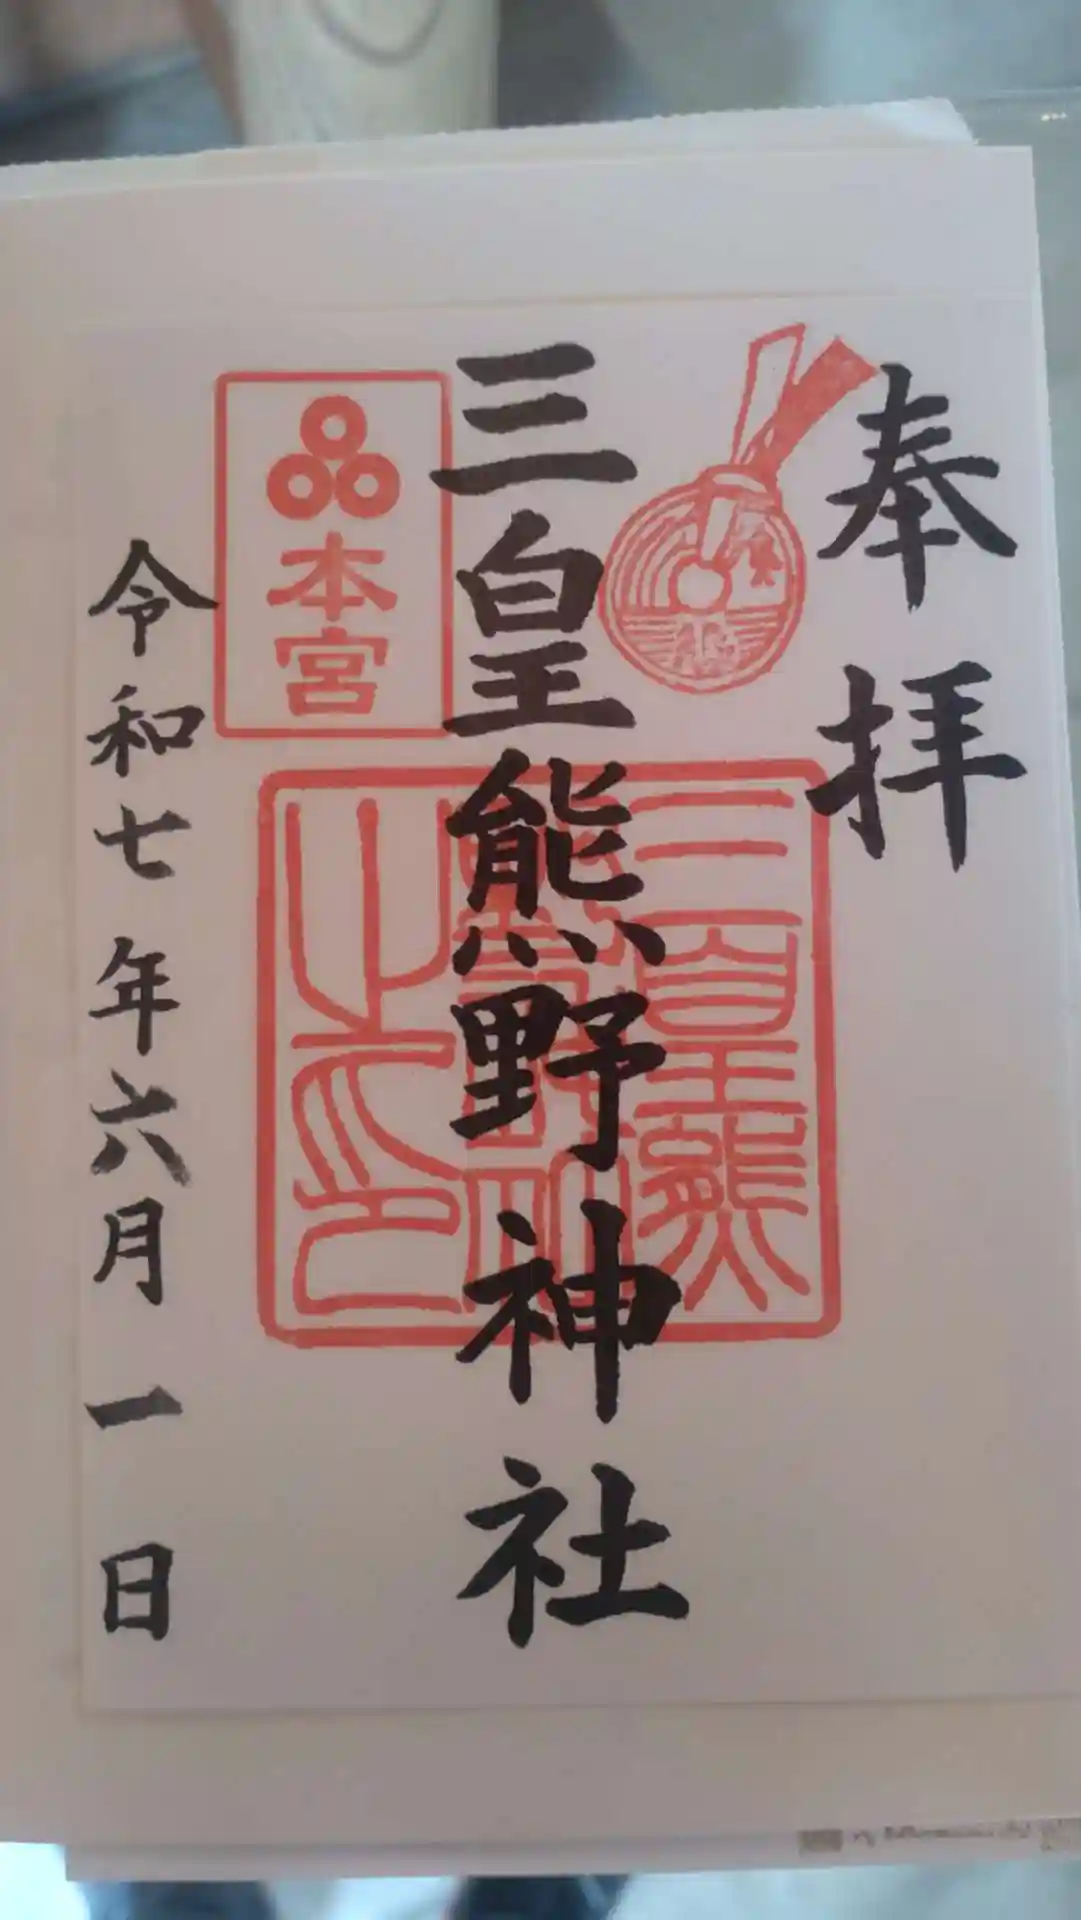 奉拝
三皇熊野神社
本宮
三皇熊
野神社
之印
令和七年六月一日